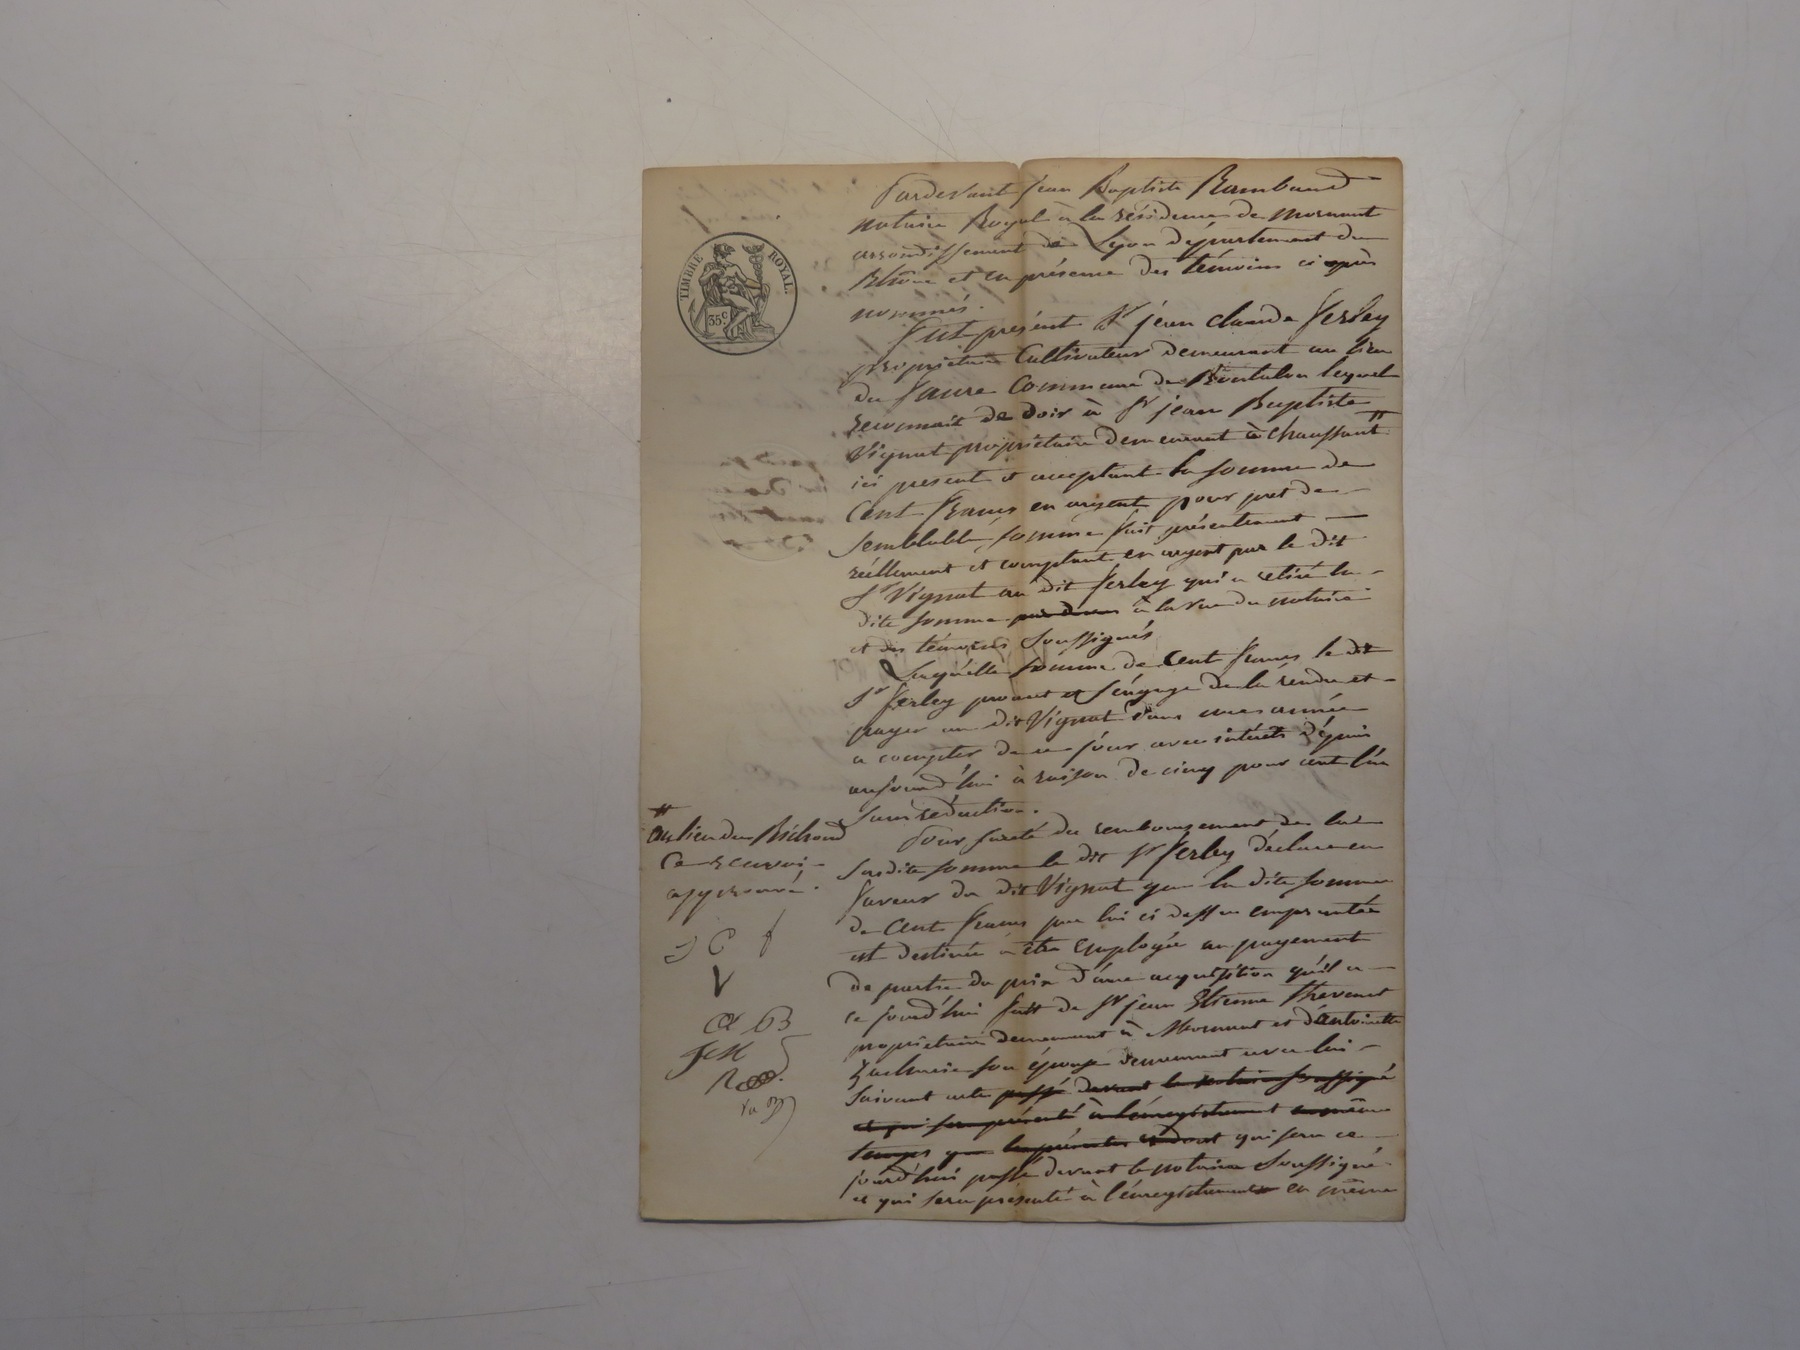 TIMBRE ROYAL.
35c
Pardevant jean Baptiste Rambaud
notaire Royal à la résidence de mornant
arrondissement de Lyon département du
Rhône et en présence des témoins ci après
nommés.
Fut présent Sr jean claude ferley
propriétaire Cultivateur demeurant au lieu
du faure Commune de lequel
reconnait de doir à Sr jean Baptiste
Vignat propriétaire demeurant à chaussant #
ici present et acceptant la somme de
Cent francs en argent pour pret de
semblable somme fait présentement
réellement et comptant en argent par le dit
Sr Vignat au dit ferley qui a retiré la
dite somme à la vue du notaire
et des témoins soussignés
Laquelle somme de Cent francs le dit
Sr ferley promet et s'engage de la rendre et
payer au dit Vignat dans une année
a compter de ce jour avec intérêts dépuis
aujourd'hui à raison de cinq pour cent l'an
sans réduction.
Pour sureté du remboursement de la
susdite somme le dit Sr ferley déclare en
faveur du dit Vignat que la dite somme
de Cent francs par lui ci dessus empruntée
est destinée à être employée au payement
de partie du prix d'une acquisition qu'il a
ce jourd'hui fait de Sr jean Etienne thevenet
propriétaire demeurant à Mornant et d'antoinette
Zacharie son épouse demeurant avec lui
suivant acte passé devant le notaire soussigné
et qui sera présenté à l'énregistrement en même
temps que les présentes et dont qui sera ce
jourd'hui passé devant le notaire soussigné
et qui sera présenté à l'énregistrement en même
#
au lieu du Richoud
Ce renvoi
approuvé.
J C f
V
B